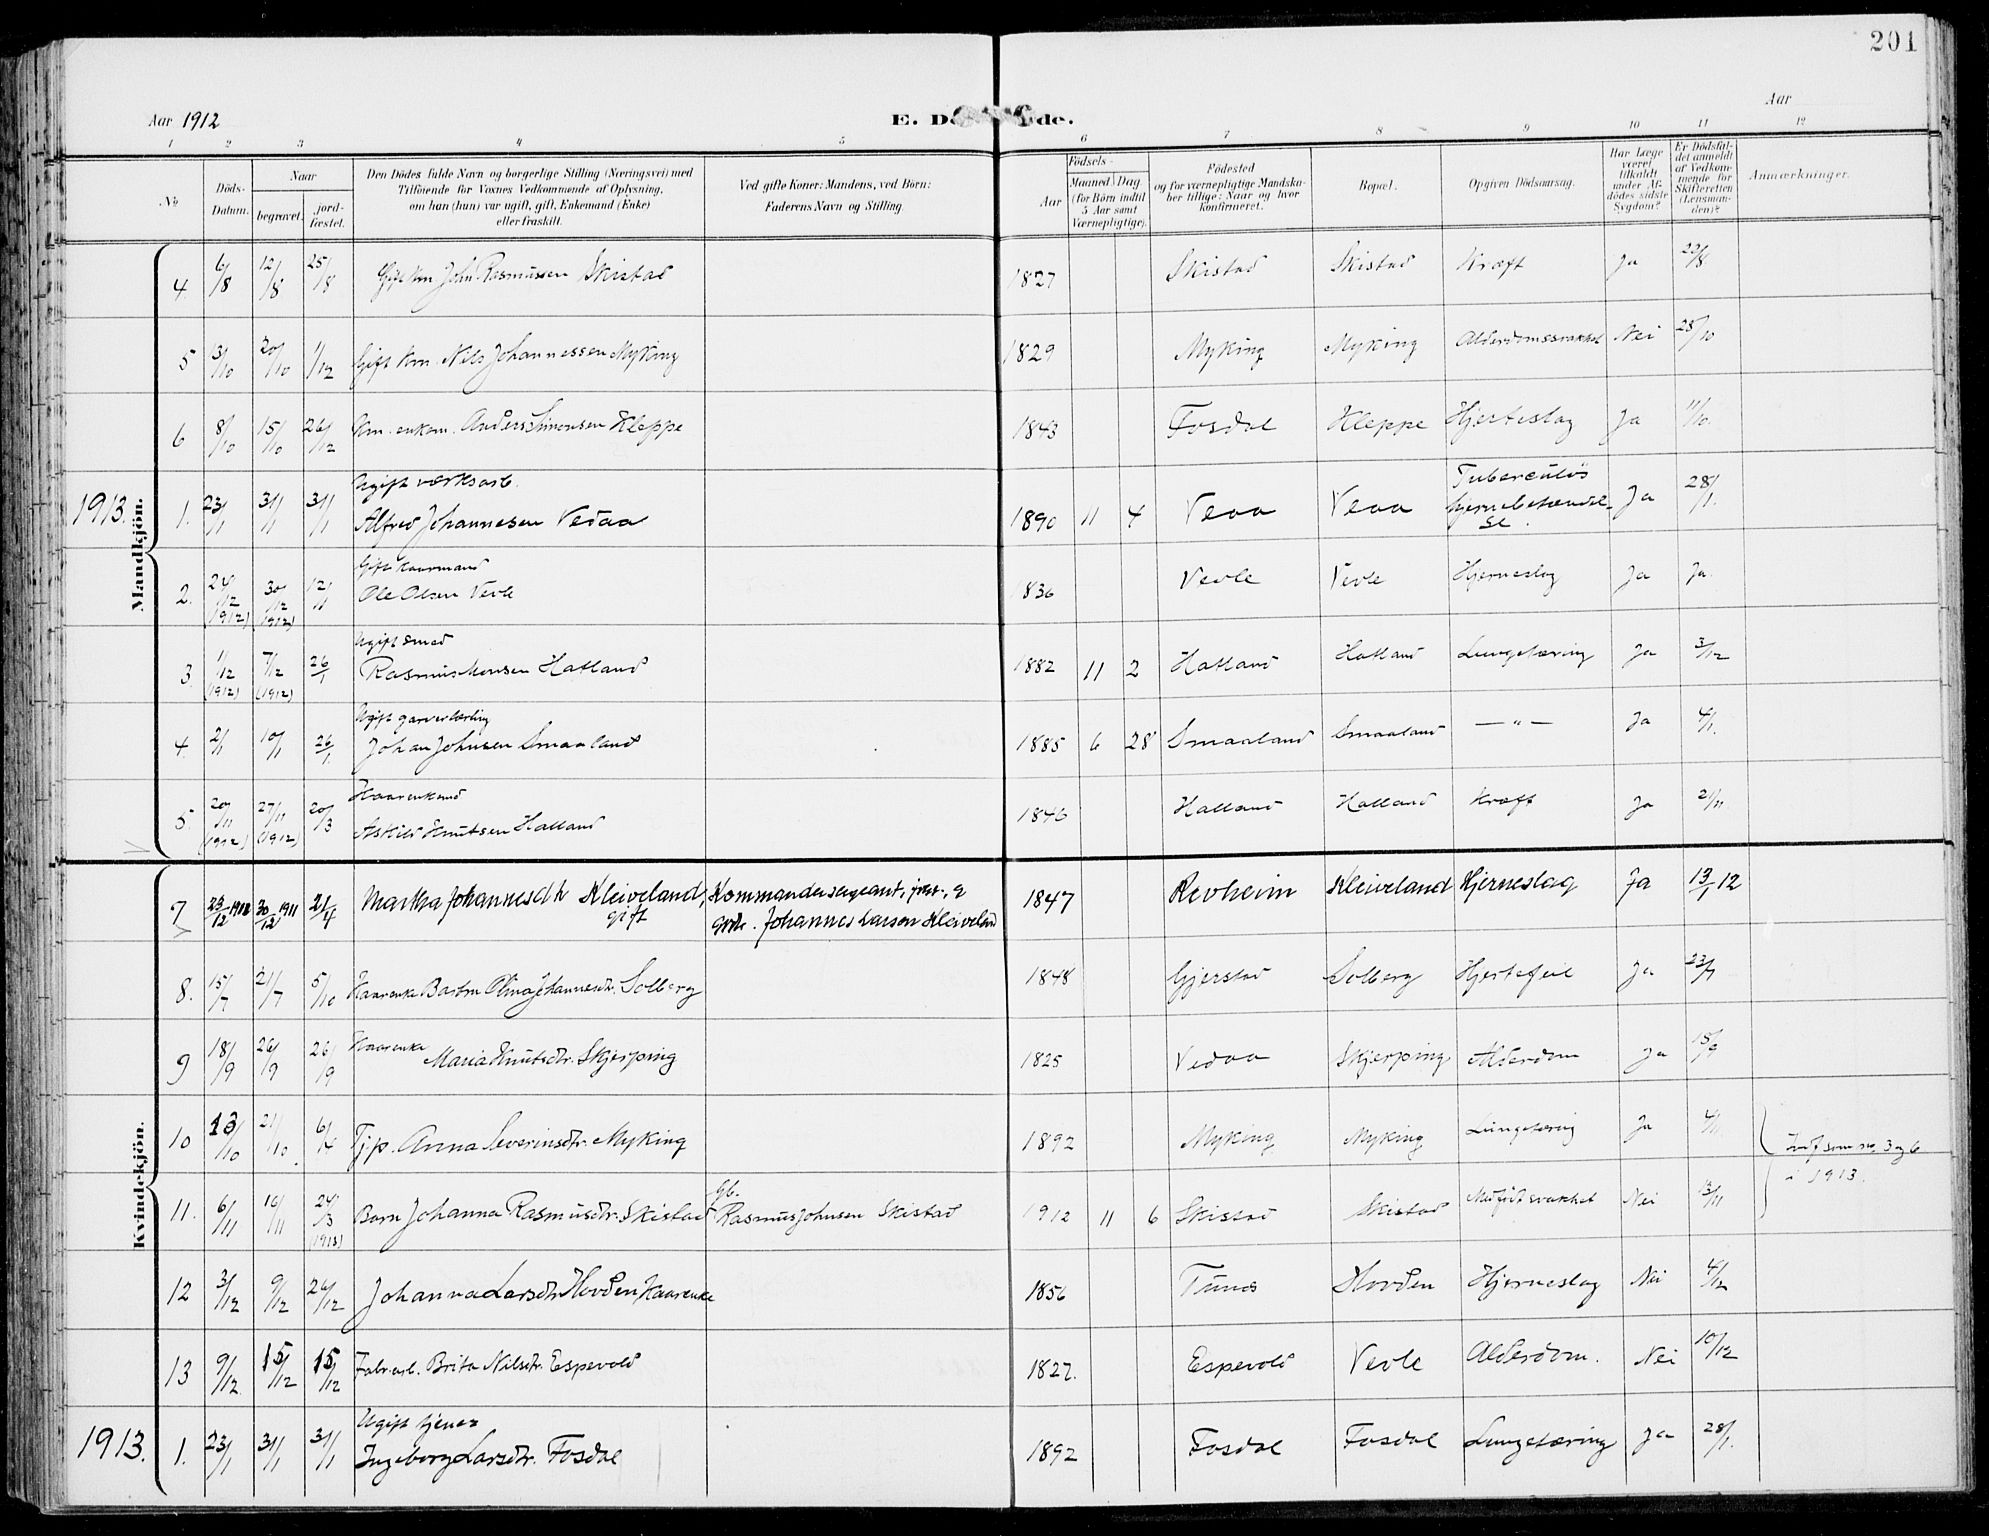 201
Aar 1912
E. De de.
Aar
1 2 3 4 5 6 7 8 9 10 11 12
No
Döds-Datum.
Naar
begravet.
jordfæstet.
Den Dödes fulde Navn og borgerlige Stilling (Næringsvei) med
Tilföiende for Voxnes Vedkommende af Oplysning,
om han (hun) var ugift, gift, Enkemand (Enke)
eller fraskilt.
Ved gifte Koner: Mandens, ved Börn:
Faderens Navn og Stilling.
Födsels-
Aar
Maaned Dag
(for Börn indtil
5 Aar samt
Værnepligtige).
Födested
og for værnepligtige Mandskaber tillige: Naar og hvor
konfirmeret.
Bopæl.
Opgiven Dödsaarsag.
Har Læge
været
tilkaldt
under Afdödes sidste
Sygdom?
Er Dödsfaldet anmeldt
af Vedkommende for
Skifteretten
(Lensmanden)?
Anmærkninger.
Mandkjön.
4 6/8 12/8 25/8 Gift km John Rasmussen Skistad 1827 Skistad Skistad Kræft Ja 22/8
5 3/10 20/10 1/12 Gift km. Nils Johannessen Myking 1829 Myking Myking Alderdomssvakhet Nei 28/10
6 8/10 15/10 26/12 km. enkem. Anders Simonsen Kleppe 1843 Fosdal Kleppe Hjerteslag Ja 11/10.
1913. 1. 23/1 31/1 31/1 Ugift værksarb. Alfred Johannesen Vedaa 1890 11 4 Vedaa Vedaa Tuberculös hjernebetændelse. Ja 28/1.
2. 24/12 (1912) 30/12 (1912) 12/1 Gift kaarmand Ole Olsen Vevle 1836 Vevle Vevle Hjerneslag Ja Ja.
3. 1/12 (1912) 7/12 (1912) 26/1 Ugift smed Rasmus Monsen Hatland 1882 11 2 Hatland Hatland Lungetæring Ja 3/12
4. 2/1 10/1 26/1 Ugift garverlærling Johan Johnsen Smaaland 1885 6 28 Smaaland Smaaland — " — Ja 4/1.
5. 20/11 (1912) 27/11 (1912) 20/3 Kaarenkemd Askild Knutsen Halland 1846 Halland Halland Kræft Ja 21/11
Kvindekjön.
7 23/12 1911 30/12 1911 21/4 Martha Johannesdtr Kleiveland, gift Kommandersergeant, Johannes Larsen Kleiveland 1847 Revheim Kleiveland Hjerneslag Ja 13/1 12
8. 15/7 21/7 5/10 Kaarenke Olina Johannesdtr. Solberg 1848 Gjerstad Solberg Hjertefeil Ja 23/7
9 18/9 26/9 26/9 Kaarenke Maria Knutsdtr. Skjerping 1825 Vedaa Skjerping Alderdom Ja 15/9
10 13/10 21/10. 6/4 Tjp. Anna Severinsdtr. Myking 1892 Myking Myking Lungetæring Ja 4/11
11. 6/11 16/11 24/3 (1913) Barn Johanna Rasmusdtr. Skistad Gb. Rasmus Johnsen Skistad 1912 11 6 Skistad Skistad Medfödt svakhet Nei 13/11
Indf som no 3 og 6
i 1913.
12 3/12 9/12 26/12 Johanna Larsdtr. Hovden, Kaarenke 1856 Tunes Hovden Hjerneslag Nei 4/12
13 9/12 15/12 15/12 Brita Nilsdtr. Espevold 1827. Espevold Vevle Alderdom. Nei 10/12
1913. 1. 23/1 31/1 31/1 Ugift tjener Ingeborg Larsdtr. Fosdal 1892 Fosdal Fosdal Lungetæring Ja 28/1.